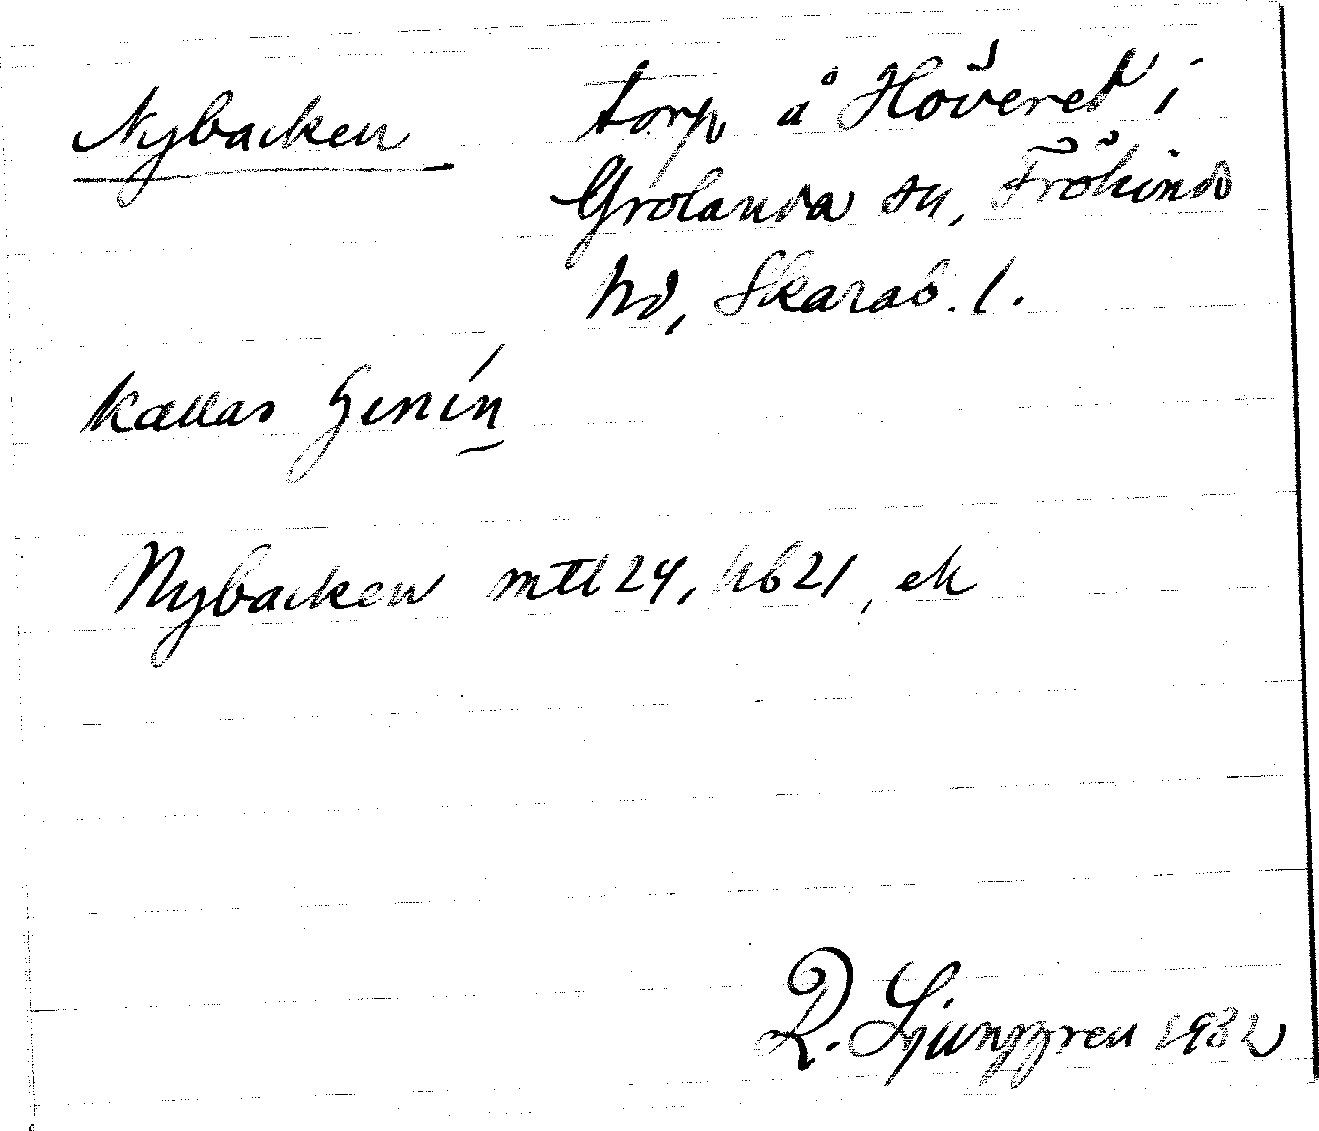 Nybacken torp å Höveret i
Grolanda sn, Frökinds
hd, Skarab. l.
kallas
Nybacken mtl 24, hb 21, ek
R. Ljunggren 1932